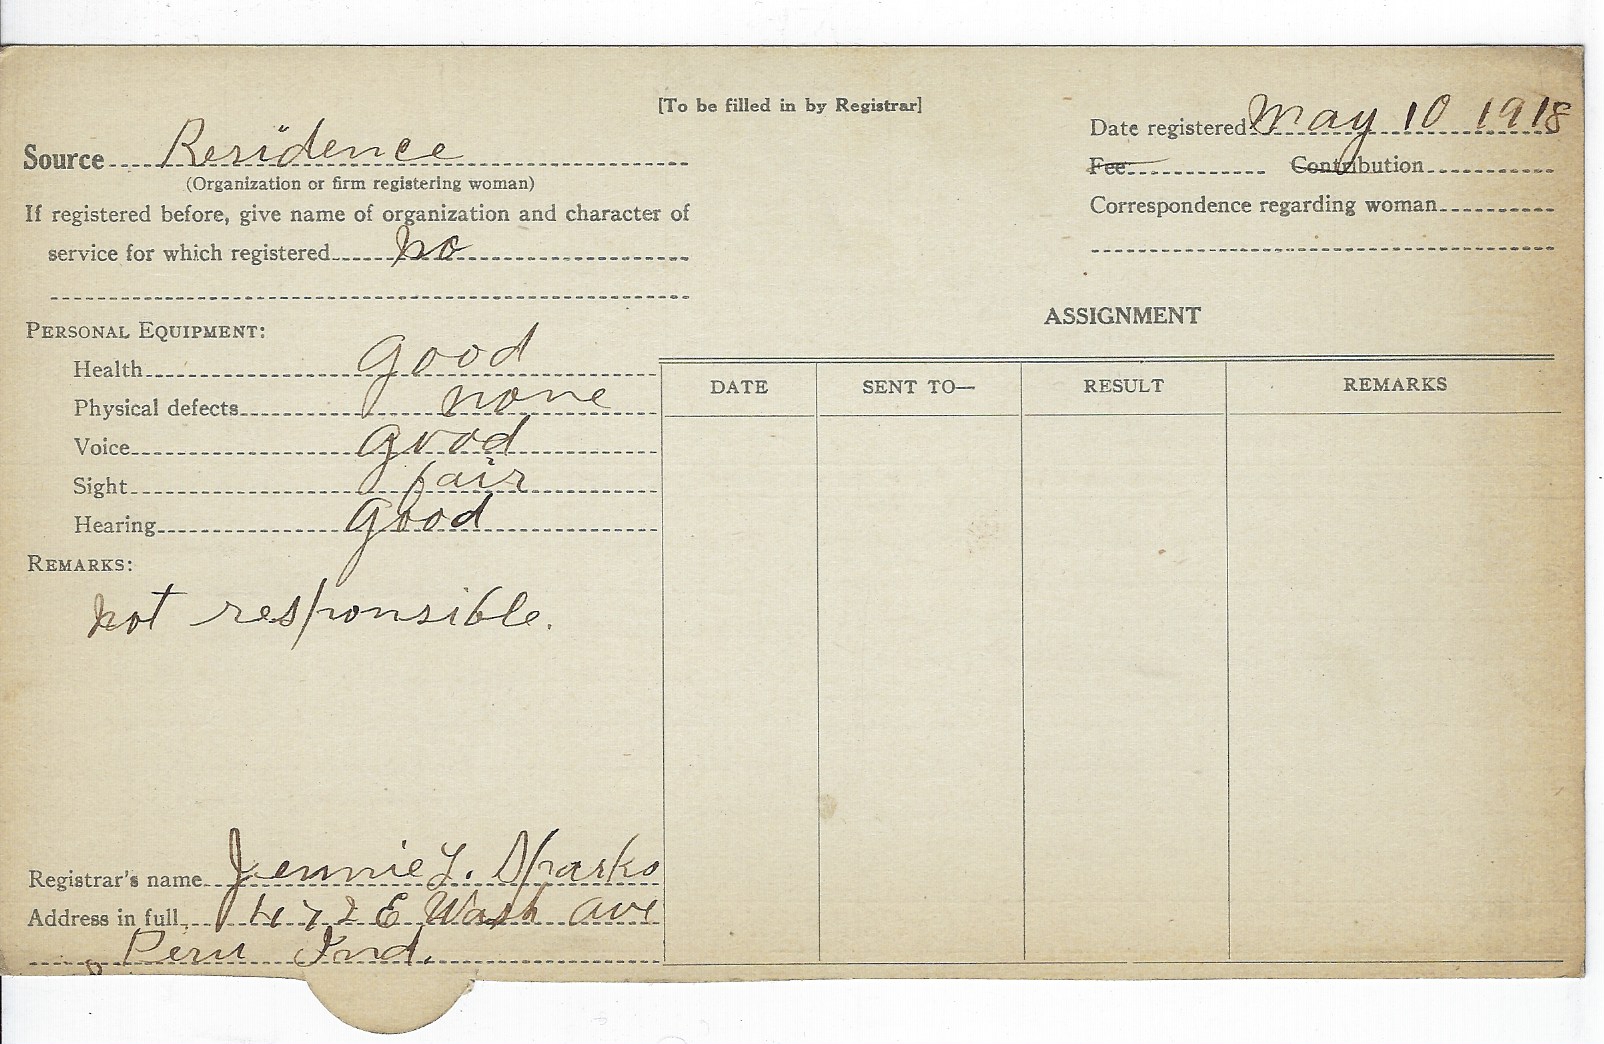 [To be filled in by Registrar]
Date registered May 10 1918
Source Residence
Fee Contribution
(Organization or firm registering woman)
If registered before, give name of organization and character of
Correspondence regarding woman
service for which registered no
ASSIGNMENT
PERSONAL EQUIPMENT:
Health good
DATE SENT TO— RESULT REMARKS
Physical defects none
Voice good
Sight fair
Hearing good
REMARKS:
not responsible.
Registrar's name Jennie L. Sparks
Address in full, 472 E Wash ave
Peru Ind.